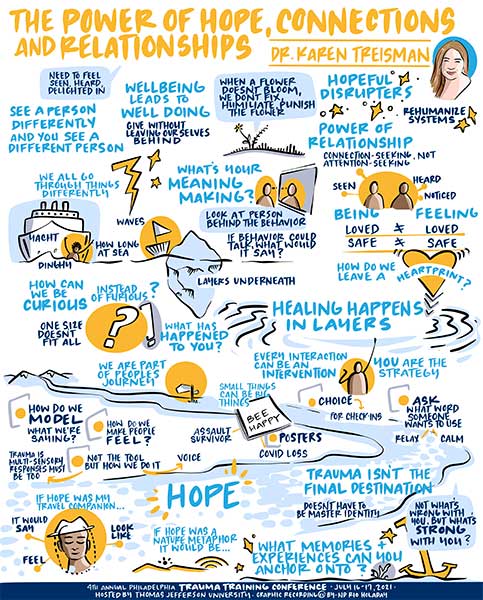 THE POWER OF HOPE, CONNECTIONS
AND RELATIONSHIPS
DR. KAREN TREISMAN
NEED TO FEEL
SEEN, HEARD
DELIGHTED IN
SEE A PERSON
DIFFERENTLY
AND YOU SEE A
DIFFERENT PERSON
WELLBEING
LEADS TO
WELL DOING
GIVE WITHOUT
LEAVING OURSELVES
BEHIND
WHEN A FLOWER
DOESNT BLOOM,
WE DONT FIX,
HUMILIATE, PUNISH
THE FLOWER
HOPEFUL
DISRUPTERS
REHUMANIZE
SYSTEMS
POWER OF
RELATIONSHIP
CONNECTION-SEEKING, NOT
ATTENTION-SEEKING
SEEN
HEARD
NOTICED
WE ALL GO
THROUGH THINGS
DIFFERENTLY
YACHT
DINGHY
WAVES
HOW LONG
AT SEA
WHAT'S YOUR
MEANING
MAKING?
LOOK AT PERSON
BEHIND THE BEHAVIOR
IF BEHAVIOR COULD
TALK, WHAT WOULD
IT SAY?
LAYERS UNDERNEATH
BEING FEELING
LOVED ≠ LOVED
SAFE ≠ SAFE
HOW DO WE
LEAVE A HEARTPRINT?
HOW CAN
WE BE
CURIOUS
INSTEAD
OF FURIOUS?
ONE SIZE
DOESNT
FIT ALL
?
!
WHAT HAS
HAPPENED
TO YOU?
HEALING HAPPENS
IN LAYERS
WE ARE PART
OF PEOPLES
JOURNEY
EVERY INTERACTION
CAN BE AN
INTERVENTION
YOU ARE THE
STRATEGY
SMALL THINGS
CAN BE BIG
THINGS
BEE
HAPPY
CHOICE
FOR CHECK-INS
ASK
WHAT WORD
SOMEONE
WANTS TO USE
RELAX
CALM
HOW DO WE
MODEL
WHAT WE'RE
SAYING?
HOW DO WE
MAKE PEOPLE
FEEL?
ASSAULT
SURVIVOR
POSTERS
COVID LOSS
TRAUMA IS
MULTI-SENSORY
RESPONSES MUST
BE TOO
NOT THE TOOL
BUT HOW WE DO IT
VOICE
HOPE
TRAUMA ISN'T THE
FINAL DESTINATION
DOESN'T HAVE
TO BE MASTER IDENTITY
NOT WHAT'S
WRONG WITH
YOU, BUT WHATS
STRONG
WITH YOU?
IF HOPE WAS MY
TRAVEL COMPANION...
IT WOULD
SAY
LOOK
LIKE
FEEL
IF HOPE WAS A
NATURE METAPHOR
IT WOULD BE...
WHAT MEMORIES +
EXPERIENCES CAN YOU
ANCHOR ONTO?
4TH ANNUAL PHILADELPHIA TRAUMA TRAINING CONFERENCE · JULY 16-17, 2021 ·
HOSTED BY THOMAS JEFFERSON UNIVERSITY · GRAPHIC RECORDING